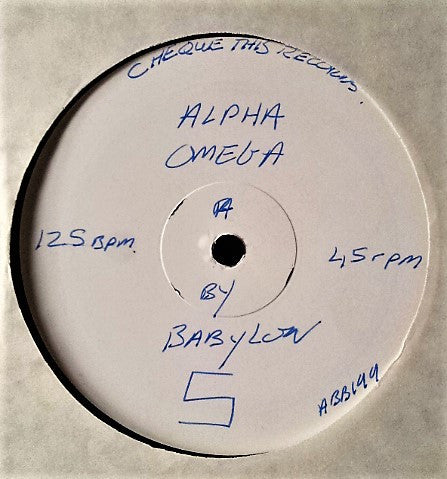 CHEQUE THIS RECORDS
ALPHA
OMEGA
A
125 BPM
45 rpm
BY
BABYLON
5
ABB199